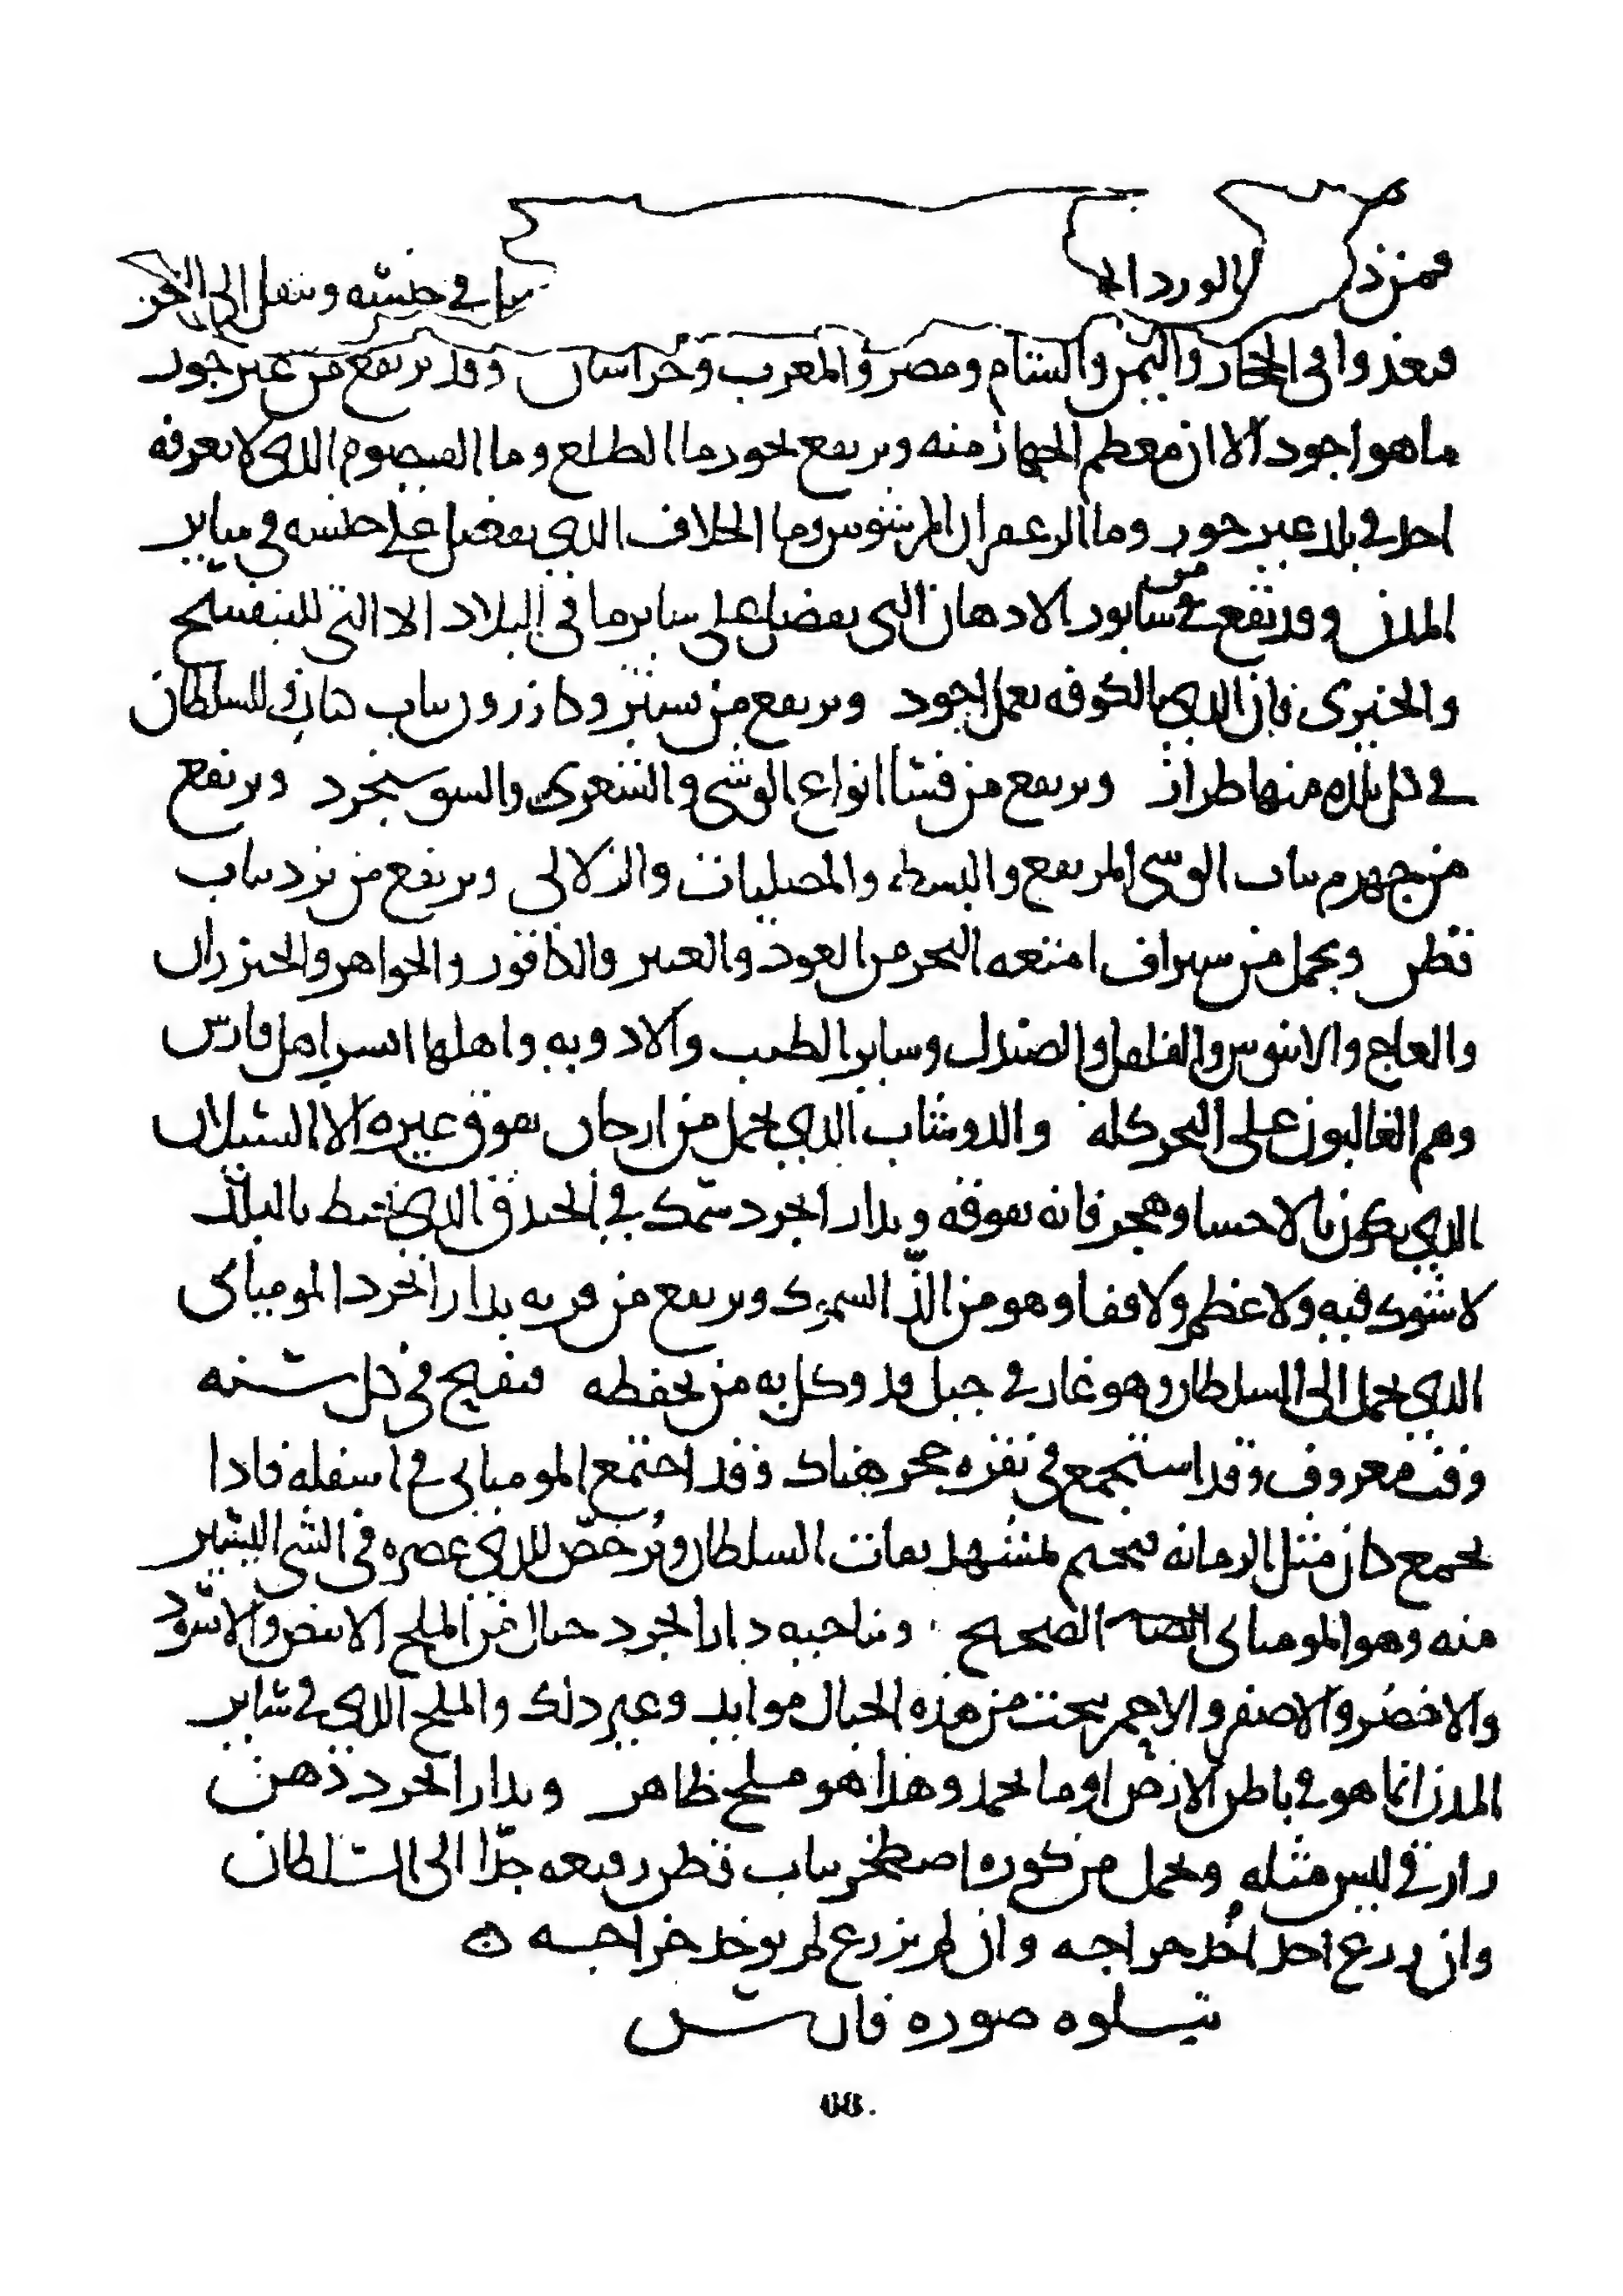 فمن ذ الورد الـ ـا في جنسه وينقل الى البحر
فيغدوا في الحجاز واليمن والشام ومصر والمغرب وخراسان وقد يرتفع من غير جور
ما هو اجود الا ان معظم الجهاز منه ويرتفع بجور ما الطلع وما القيصوم الذي لا يعرفه
احد في بلد غير جور وما الزعفران المرسوس وما الخلاف الذي يفضل على جنسه في ساير
المدن ويرتفع من سابور الادهان التي يفضل على ساير ما في البلاد الا التي للبنفسج
والخيري فان الذي بالكوفه يعمل اجود ويرتفع من سينيز وكازرون ثياب كتان وللسلطان
في كل بلده منها طراز ويرتفع من فسا انواع الوشي والشعري والسوسنجرد ويرتفع
من جهرم ثياب الوشي المرتفع والبسط والمصليات والزلالي ويرتفع من يزد ثياب
قطن ويحمل من سيراف امتعه البحر من العود والعنبر والكافور والجواهر والخيزران
والعاج والابنوس والفلفل والصندل وساير الطيب والادويه واهلها ايسر اهل فارس
وهم الغالبون على البحر كله والدوشاب الذي يحمل من ارجان يفوق غيره الا السيلان
الذي يكون بالاحسا وهجر فانه يفوقه وبدارابجرد سمك في الخندق الذي يحيط بالبلد
لا شوك فيه ولا عظم ولا قفا وهو من الذ السموك ويرتفع من قريه بدارابجرد الموميائى
الذي يحمل الى السلطان وهو غار في جبل قد وكل به من يحفظه فيفتح في كل سنه
وقت معروف وقد استجمع في نقره حجر هناك وقد اجتمع الموميائى في اسفله فاذا
يجمع كان مثل الرمانه فيختم بمشهد ثقات السلطان ويرخص للذي عصره في الشى اليسير
منه وهو الموميائى الصحيح وبناحيه دارابجرد جبال من الملح الابيض والاسود
والاخضر والاصفر والاحمر ينحت من هذه الجبال موايد وغير ذلك والملح الذي في ساير
المدن انما هو في باطن الارض او ما يجمد وهذا هو ملح ظاهر وبدارابجرد دهن
رازقي ليس مثله ويحمل من كوره اصطخر ثياب قطن رفيعه جدا الى السلطان
وان زرع احد اخذ خراجه وان لم يزرع لم يوخذ خراجه
يتلوه صوره فارس
68.